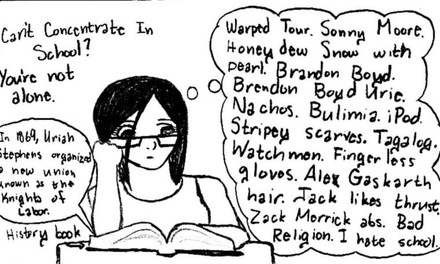 Can't Concentrate In
School?
You're not
alone.
In 1869, Uriah
Stephens organized
a new union
known as the
Knights of
Labor.
History book
Warped Tour. Sonny Moore.
Honey dew Snow with
pearl. Brandon Boyd.
Brendon Boyd Urie.
Nachos. Bulimia. iPod.
Stripey scarves. Tagalog.
Watchmen. Finger less
gloves. Alex Gaskarth
hair. Jack likes thrust.
Zack Merrick abs. Bad
Religion. I hate school.